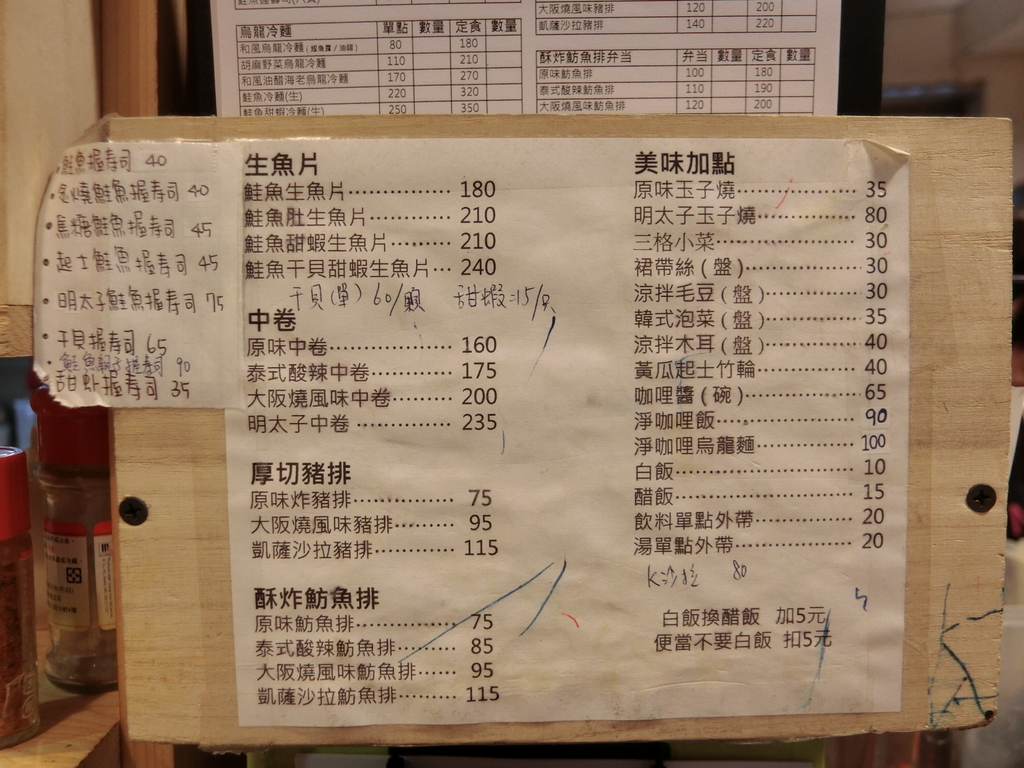 大阪燒風味豬排 120 200
凱薩沙拉豬排 140 220
烏龍冷麵 單點 數量 定食 數量
和風烏龍冷麵 80 180
胡麻野菜烏龍冷麵 110 210
和風油醋海老烏龍冷麵 170 270
鮭魚冷麵(生) 220 320
鮭魚甜蝦冷麵(生) 250 350
酥炸魴魚排弁当 弁当 數量 定食 數量
原味魴魚排 100 180
泰式酸辣魴魚排 110 190
大阪燒風味魴魚排 120 200
鮭魚握寿司 40
炙燒鮭魚握寿司 40
焦糖鮭魚握寿司 45
起士鮭魚握寿司 45
明太子鮭魚握寿司 75
干貝握寿司 65
甜虾握寿司 35
生魚片
鮭魚生魚片 180
鮭魚肚生魚片 210
鮭魚甜蝦生魚片 210
鮭魚干貝甜蝦生魚片 240
干貝(單) 60/顆 甜蝦:15/只
中卷
原味中卷 160
泰式酸辣中卷 175
大阪燒風味中卷 200
明太子中卷 235
厚切豬排
原味炸豬排 75
大阪燒風味豬排 95
凱薩沙拉豬排 115
酥炸魴魚排
原味魴魚排 75
泰式酸辣魴魚排 85
大阪燒風味魴魚排 95
凱薩沙拉魴魚排 115
美味加點
原味玉子燒 35
明太子玉子燒 80
三格小菜 30
裙帶絲(盤) 30
涼拌毛豆(盤) 30
韓式泡菜(盤) 35
涼拌木耳(盤) 40
黃瓜起士竹輪 40
咖哩醬(碗) 65
淨咖哩飯 90
淨咖哩烏龍麵 100
白飯 10
醋飯 15
飲料單點外帶 20
湯單點外帶 20
K沙拉 80
白飯換醋飯 加5元
便當不要白飯 扣5元